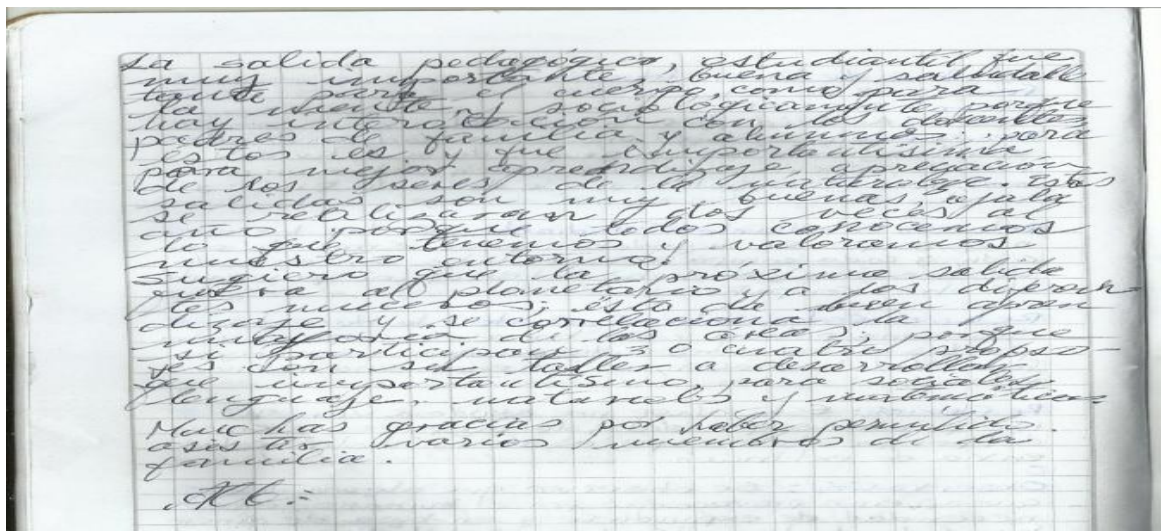 La salida pedagógica, estudiantil fue
muy importante, buena y saludable
tanto para el cuerpo, como para
la mente, y sociologicamente porque
hay interacción con los docentes
padres de familia y alumnos: para
estos es y fue importantisima
para mejor aprendizaje, apreciación
de los seres de la naturaleza. Estas
salidas son muy buenas, ojala
se realizaran dos veces al
año porque todos conocemos
lo que tenemos y valoramos
nuestro entorno.
Sugiero que la próxima salida
fuera al planetario y a los diferen-
tes museos; ésto da buen apren
dizaje y se correlaciona la
mayoria de las áreas, porque
si participan 3 o cuatro profeso-
res con su taller a desarrollar
que importantisimo, para sociales,
lenguaje, naturales y matemáticas
Muchas gracias por haber permitido
asistir varios miembros de la
familia.